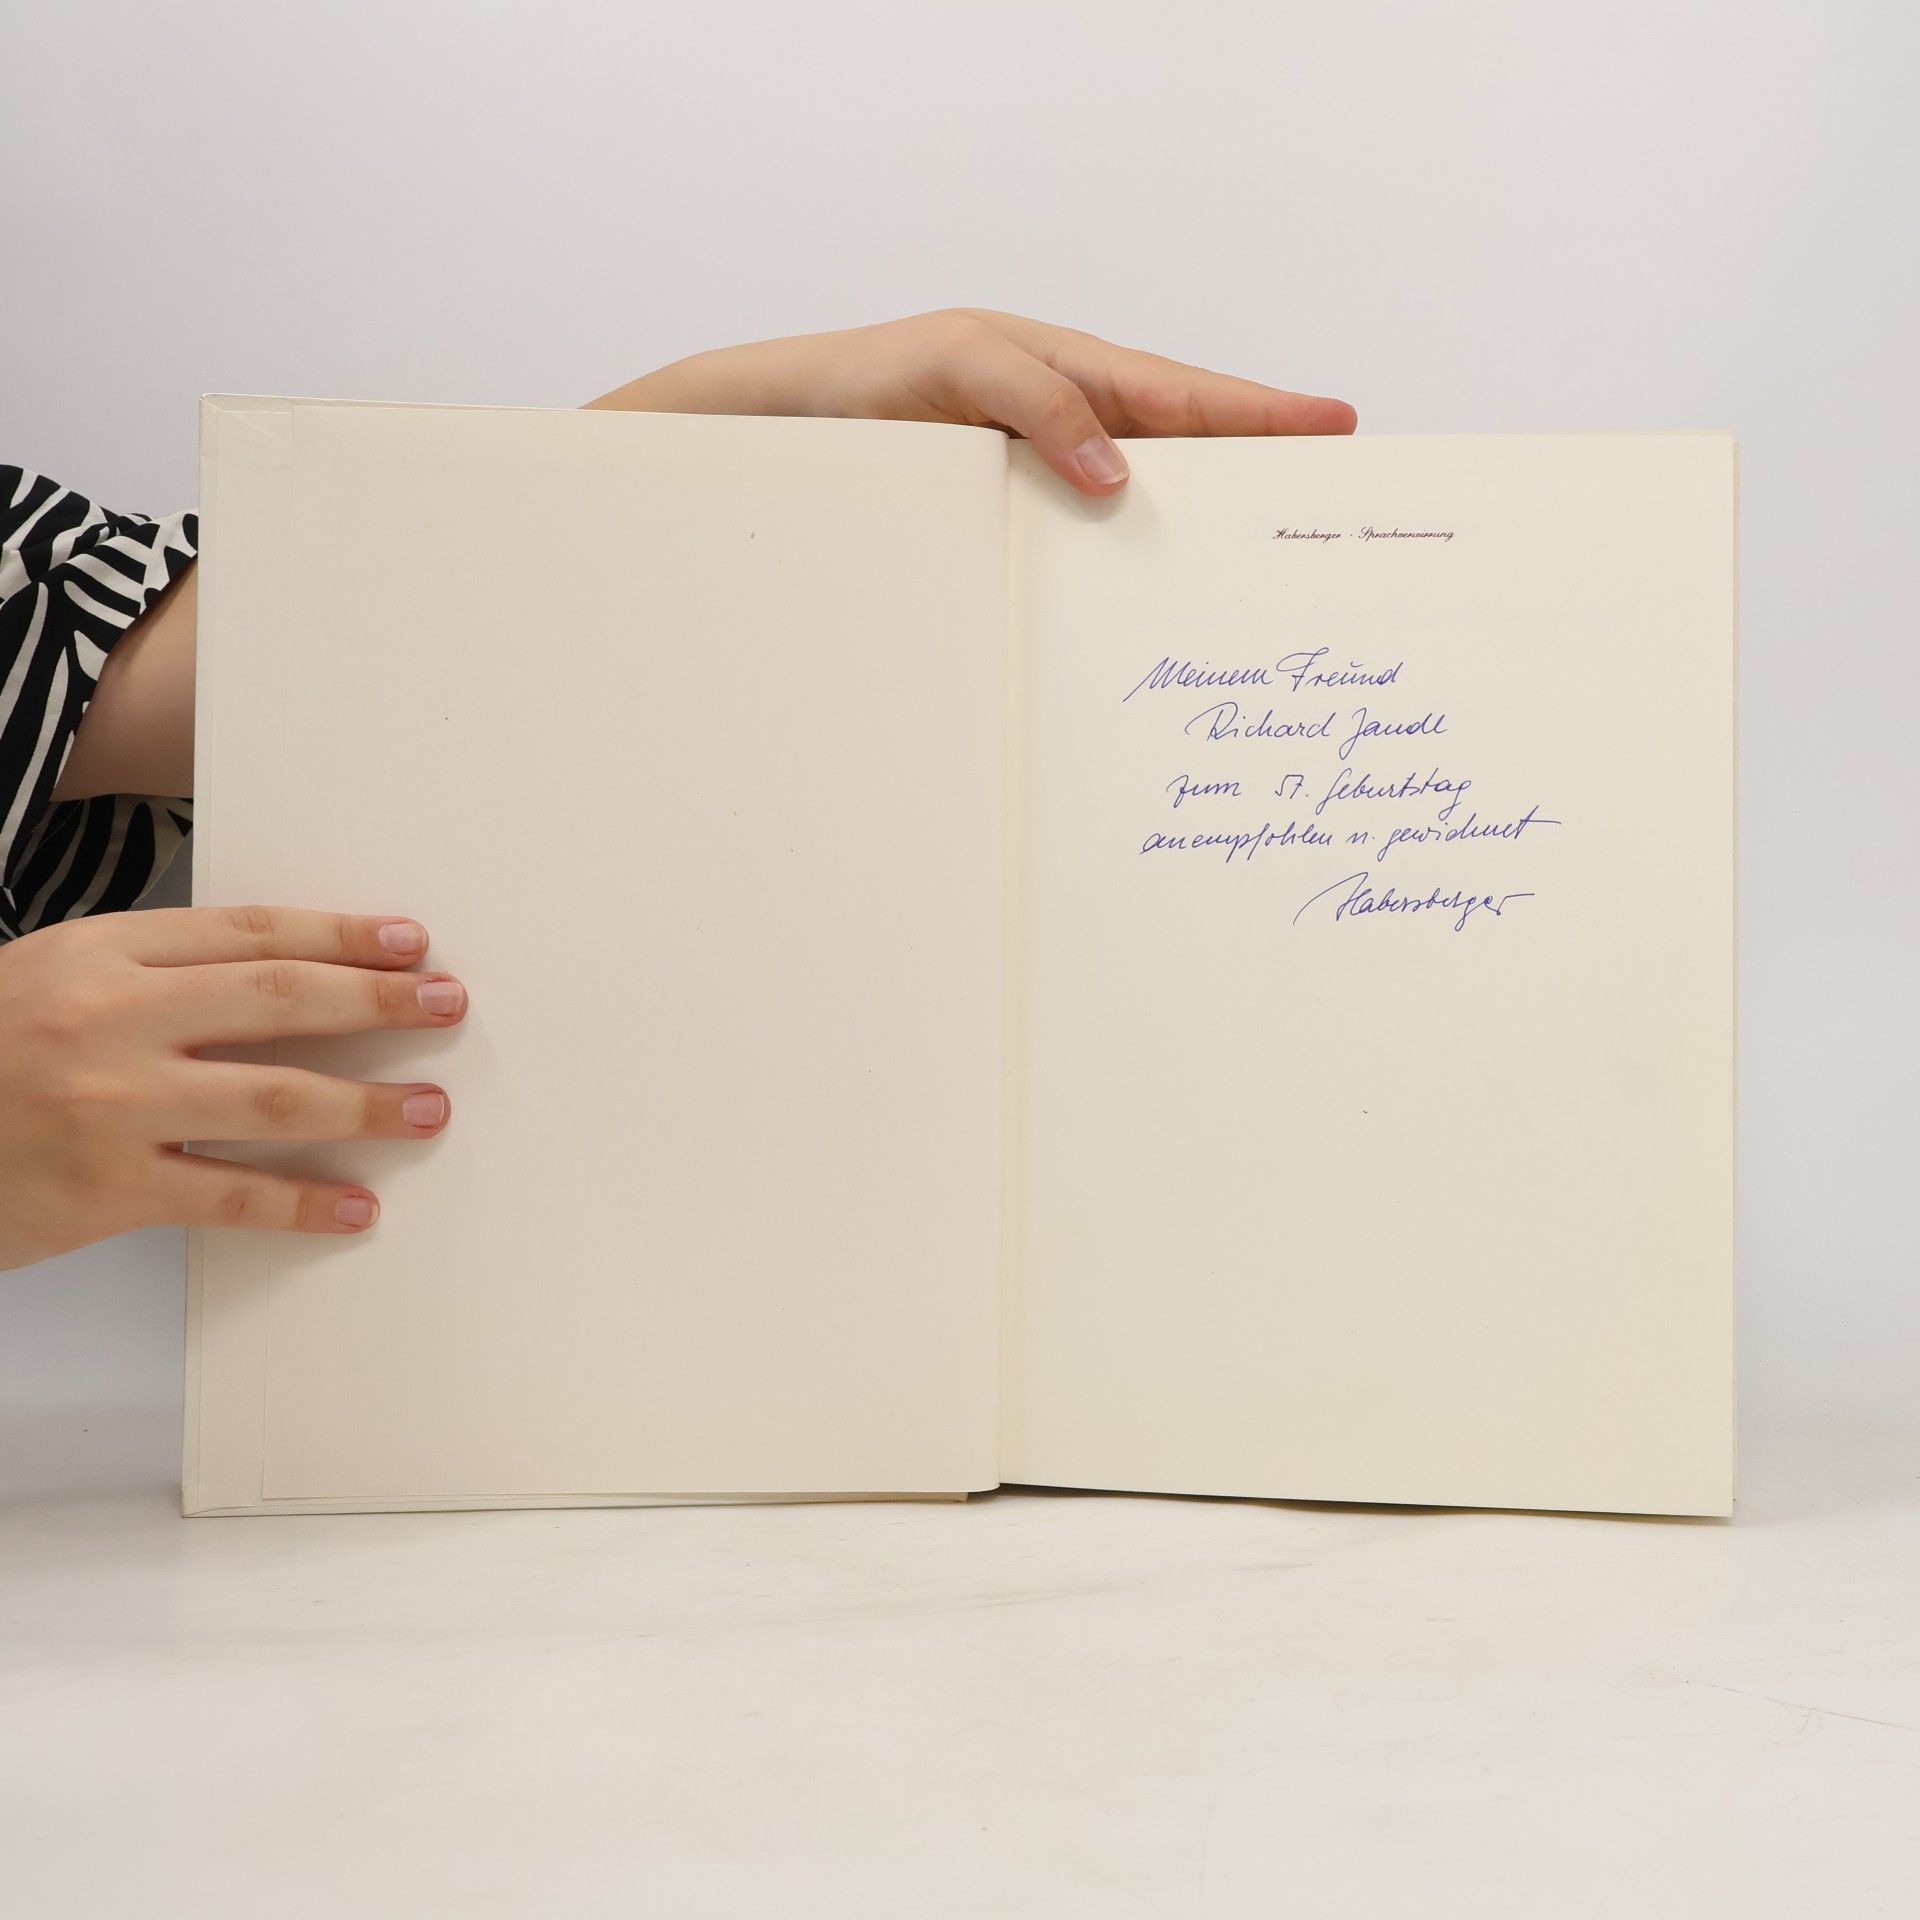 Habersberger · Sprachverwirrung
Meinem Freund
Richard Jandl
zum 57. Geburtstag
anempfohlen u. gewidmet
Habersberger